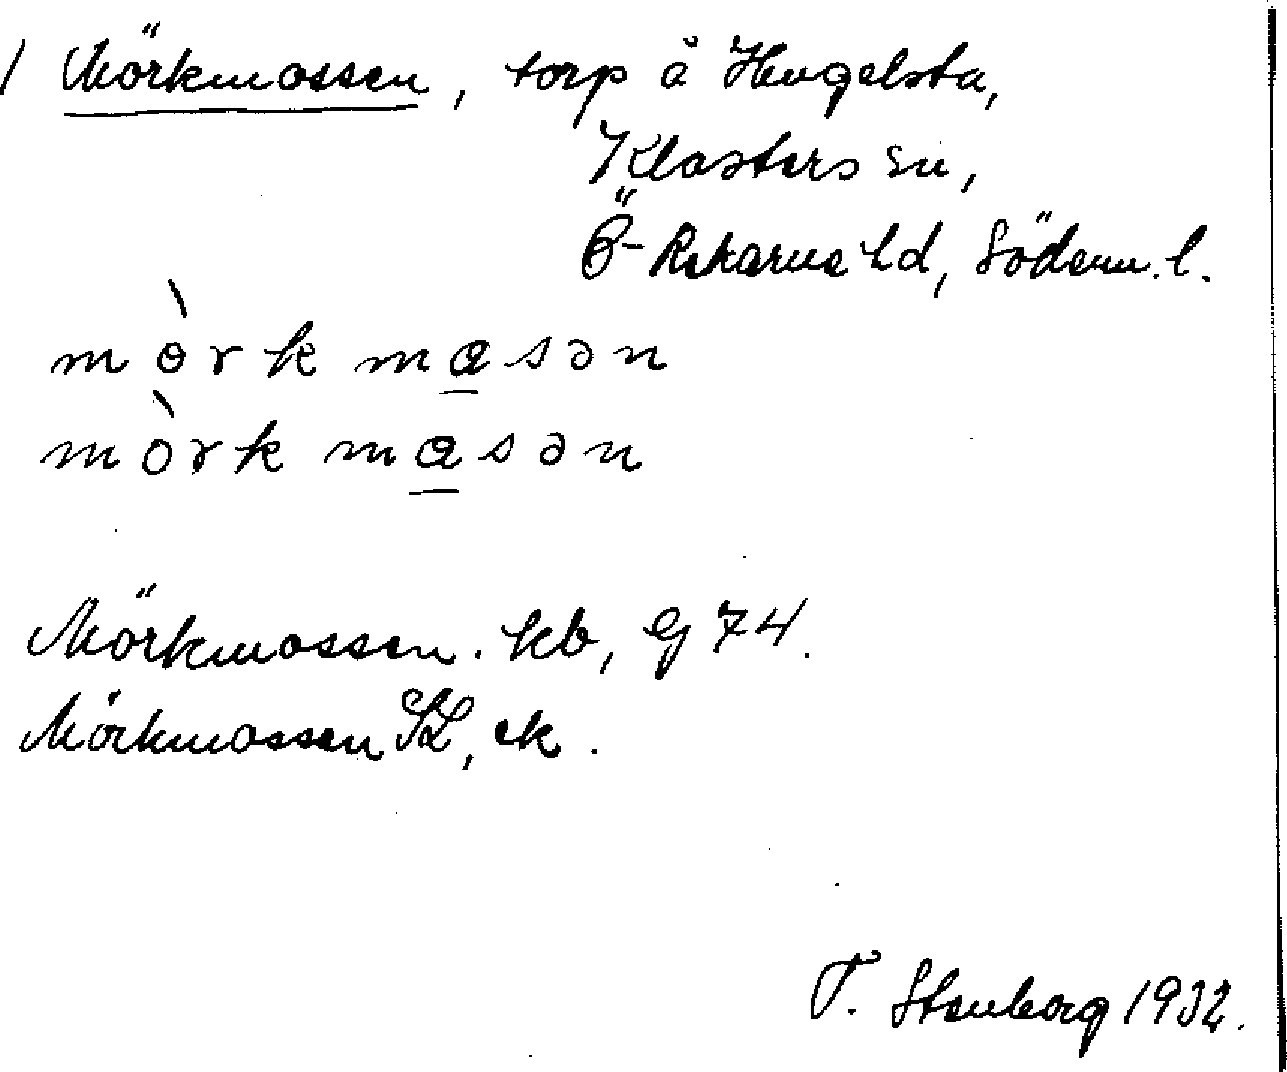 / Mörkmossen, torp å Hugelsta,
Klosters sn,
Ö-Rekarne hd, Söderm. l.
mòrk masən
mòrk masən
Mörkmossen. kb, G 74.
Mörkmossen SL, ek.
T. Stenborg 1932.